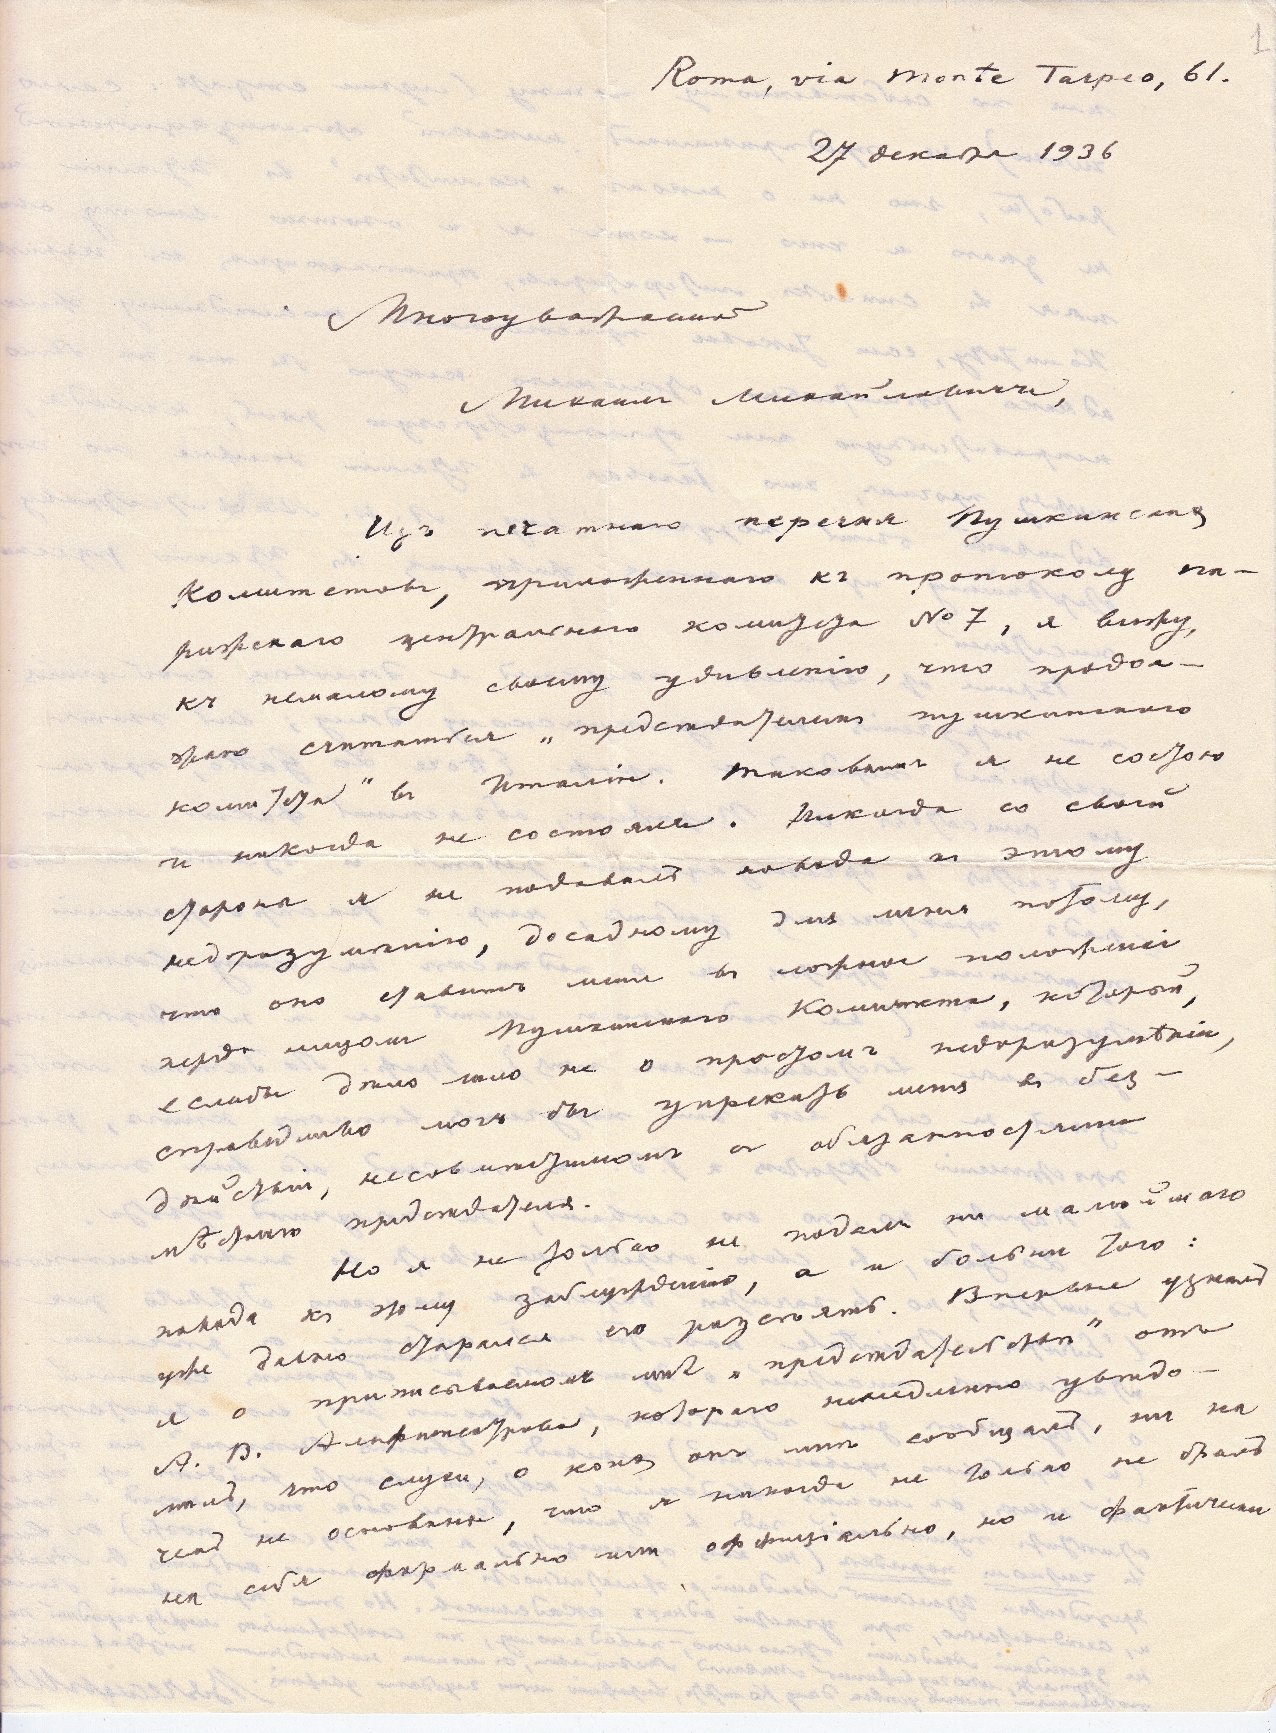 1
Roma, via Monte Tarpeo, 61.
27 декабря 1936
Многоуважаемый
Михаилъ Михайловичъ,
Изъ печатнаго перечня Пушкинскихъ
Комитетовъ, приложеннаго къ протоколу па-
рижскаго центральнаго комитета № 7, я вижу,
къ немалому своему удивленію, что продол-
жаю считаться „представителемъ пушкинскаго
комитета" въ Италіи. Таковымъ я не состою
и никогда не состоялъ. Никогда со своей
стороны я не подавалъ повода къ этому
недоразумѣнію, досадному для меня потому,
что оно ставитъ меня въ ложное положеніе
передъ лицомъ Пушкинскаго Комитета, который,
еслибы дѣло шло не о простомъ недоразумѣніи,
справедливо могъ бы упрекать меня въ без-
дѣйствіи, несовмѣстимомъ съ обязанностями
мѣстнаго представителя.
Но я не только не подалъ ни малѣйшаго
повода къ этому заблужденію, а и больше того:
уже давно старался его разсѣять. Впервые узналъ
я о приписываемомъ мнѣ „представительствѣ" отъ
А. В. Амфитеатрова, котораго немедленно увѣдо-
милъ, что слухи, о коихъ онъ мнѣ сообщалъ, ни на
чемъ не основаны, что я никогда не только не бралъ
на себя формально или оффиціально, но и фактически